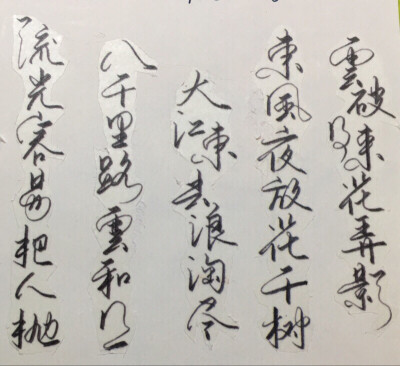 雲破月來花弄影
東風夜放花千树
大江東去浪淘尽
八千里路雲和月
流光容易把人抛